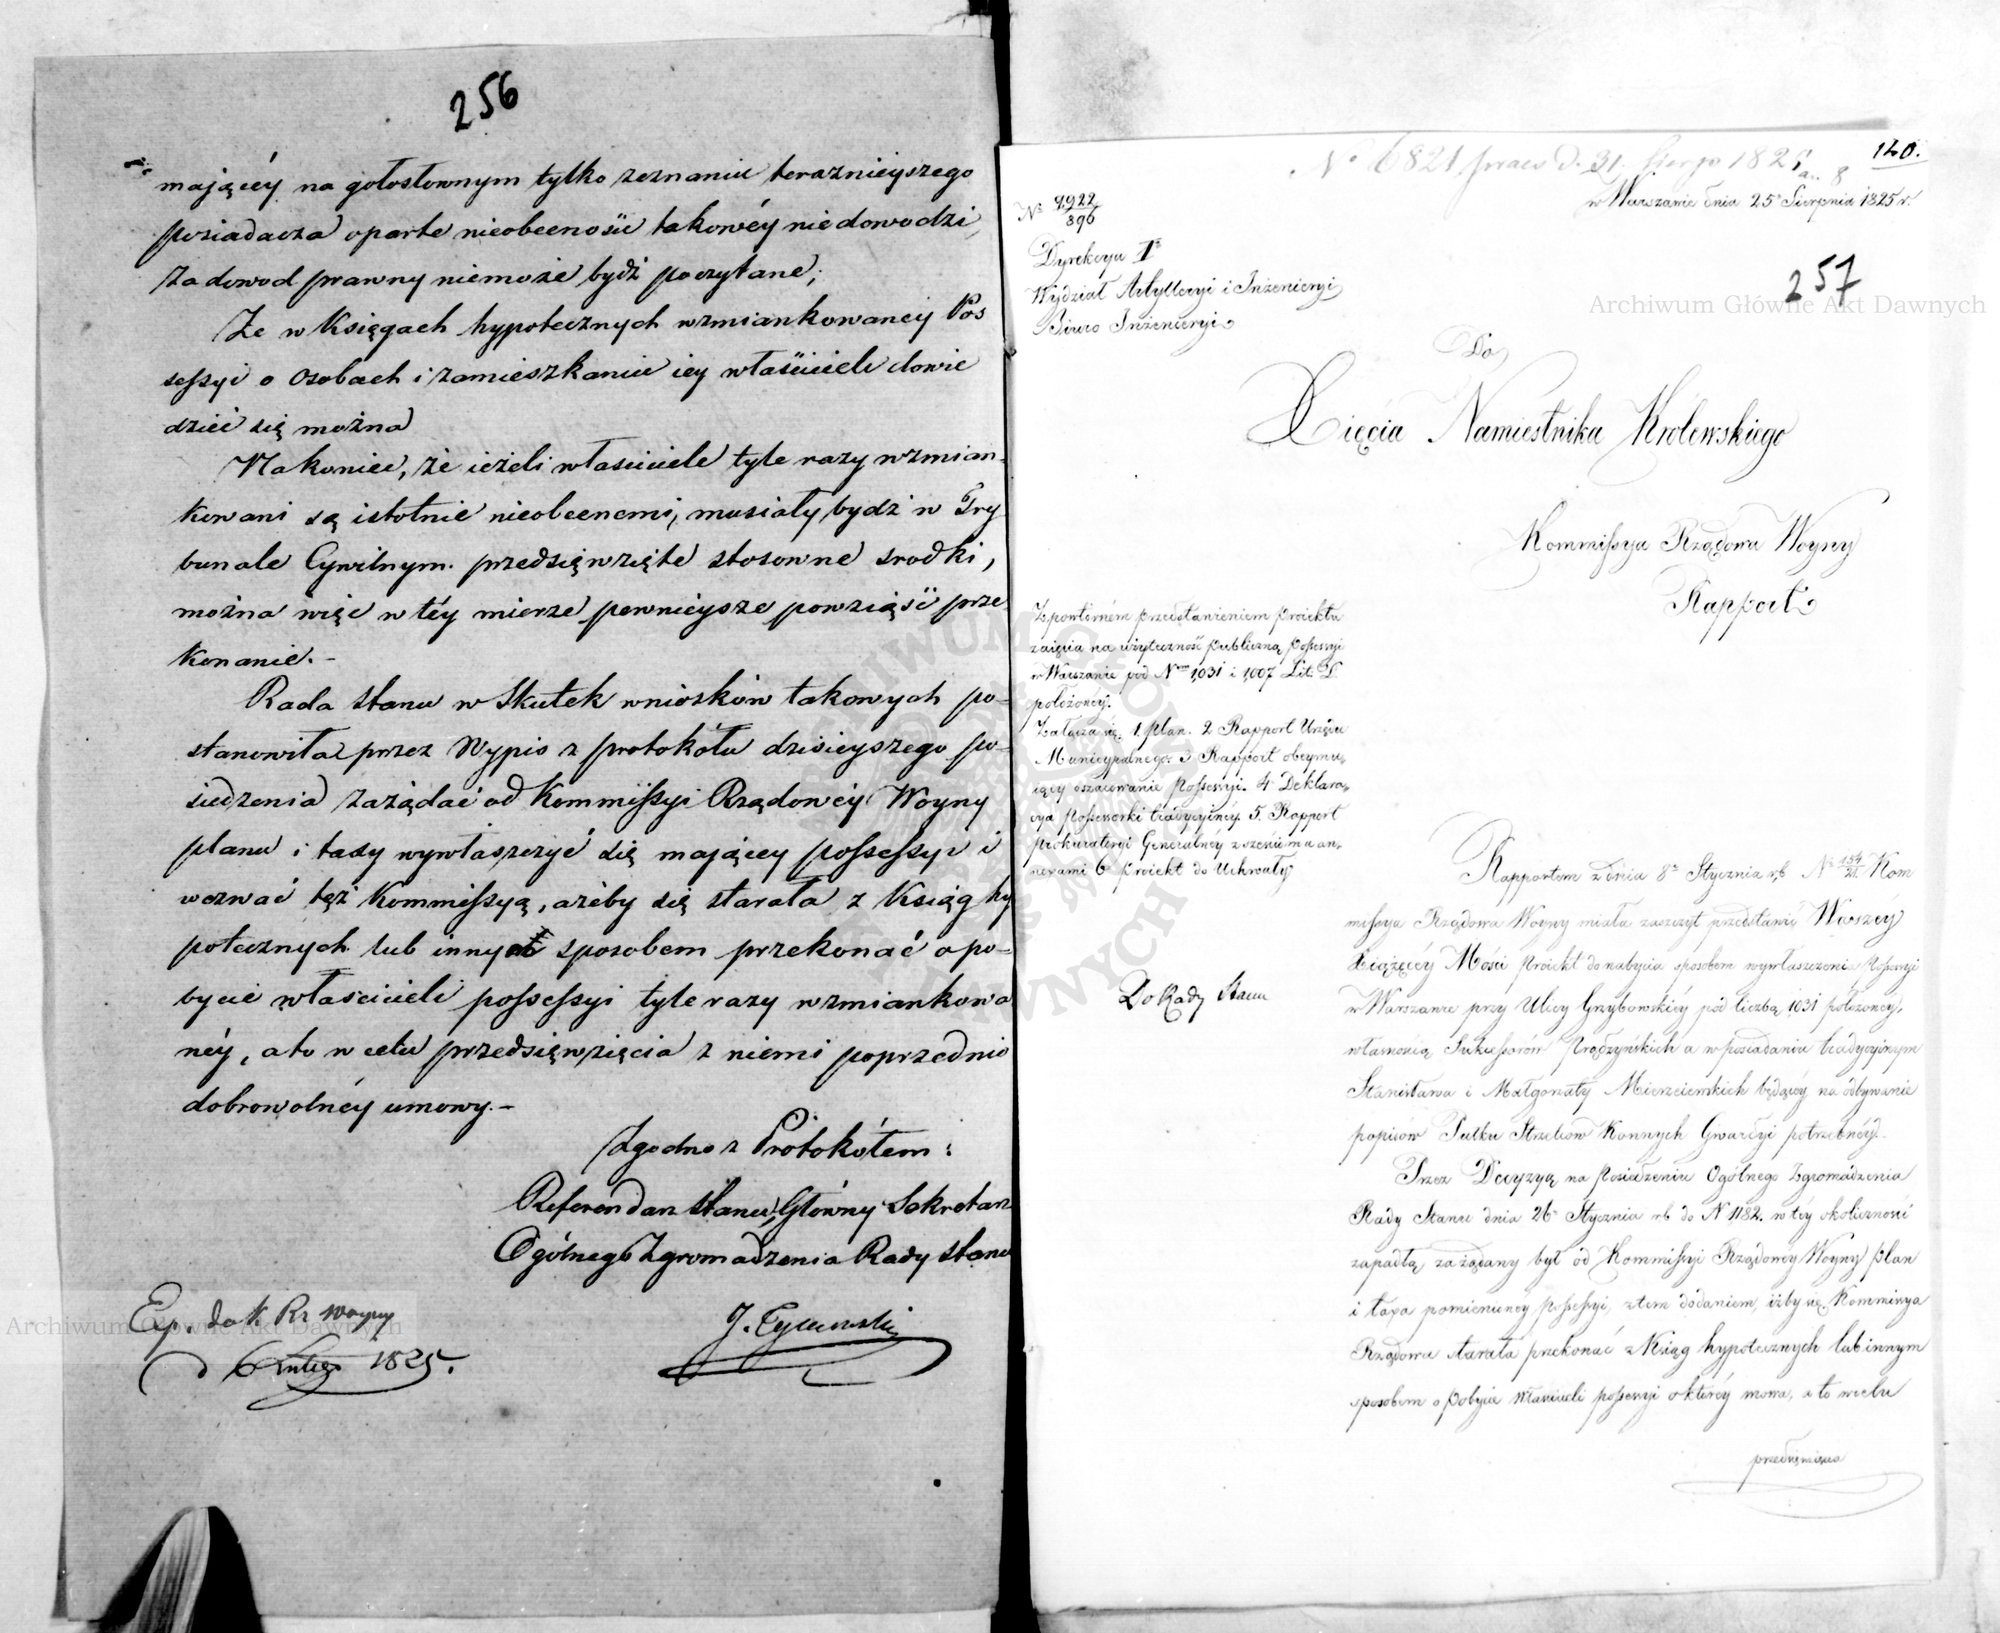 256
maiącéy na gołosłownym tylko zeznaniu teraznieyszego
posiadacza oparte nieobecności takowéy niedowodzi,
za dowod prawny niemoże bydź poczytane;
Że w Księgach hypotecznych wzmiankowaney Pos
sessyi o osobach i zamieszkaniu iey właścicieli dowie
dzieć się można
Nakoniec, że ieżeli właściciele tyle razy wzmian-
kowani są istotnie nieobecnemi, musiały bydź w Try
bunale Cywilnym przedsięwzięte stosowne srodki,
można więc w téy mierze pewnieysze powziąść prze
konanie.-
Rada Stanu w Skutek wniosków takowych po-
stanowiła przez Wypis z protokółu dzisieyszego po-
siedzenia zażądać od Kommissyi Rządowéy Woyny
planu i taxy wywłaszczyć się maiącey possessyi i
wezwać też Kommissyą, ażeby się starała z Ksiąg hy
potecznych lub innym sposobem przekonać o po-
bycie właścicieli possessyi tyle razy wzmiankowa
néy, a to w celu przedsięwzięcia z niemi poprzednio
dobrowolnéy umowy.-
Zgodno z Protokółem:
Referendarz Stanu, Główny Sekretarz
Ogólnego Zgromadzenia Rady Stanu
J. Tymowski
Exp. do K. Rz. Woyny
d 6 Lutego 1825.
No 6821 praes d. 31 Sierp 1825
120.
w Warszawie dnia 25 Sierpnia 1825 r.
No 7922/896
Dyrekcya I
Wydział Artylleryi i Inżenieryi
Biuro Inżenieryi
257
Archiwum Główne Akt Dawnych
Do
Xięcia Namiestnika Krolewskiego
Kommissya Rządowa Woyny
Rapport
Z powtórném przedstawieniem Proiektu
zaięcia na użyteczność publiczną Possessyi
w Warszawie pod Nrem 1031 i 1007 Lit. D.
położonéy.
Załącza się, 1. plan. 2 Rapport Urzędu
Municypalnego. 3 Rapport obeymu-
iący oszacowanie Possessyi. 4 Deklara-
cya Possessorki tradycyinéy. 5. Rapport
Prokuratoryi Generalnéy z sześcima an-
nexami 6 Proiekt do Uchwały
Do Rady Stanu
Rapportem z dnia 8 Stycznia rb No 154/21 Kom
missya Rządowa Woyny miała zaszczyt przedstawić Waszéy
Xiążęcéy Mości Proiekt do nabycia sposobem wywłaszczenia Possessyi
w Warszawie przy Ulicy Grzybowskiéy pod liczbą 1031 położoney,
własnością Sukcessorów Prądzyńskich a w posiadaniu tradycyinym
Stanisława i Małgorzaty Mierzeiewskich będącéy na odbywanie
popisow Pułku Strzelców Konnych Gwardyi potrzebnéy.
Przez Decyzyą na Posiedzeniu Ogólnego Zgromadzenia
Rady Stanu dnia 26 Stycznia rb do N 1182. w téy okoliczności
zapadłą zażądany był od Kommissyi Rządowéy Woyny Plan
i taxa pomienioney Possessyi, z tem dodaniem, iżby się Kommissya
Rządowa starała przekonać z Ksiąg hypotecznych lub innym
sposobem o Pobyciu Właścicieli possessyi o któréy mowa, a to w celu
przedsięwzięcia
Archiwum Główne Akt Dawnych